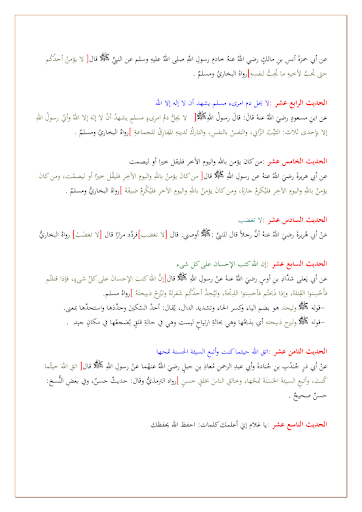 عن أبي حمزةَ أنسِ بنِ مالكٍ رضي اللهُ عنهُ خادمِ رسولِ اللهِ صلى اللهُ عليهِ وسلم عن النبيِّ ﷺ قال[ لا يؤمنُ أحدُكُم
حتى يُحِبَّ لأخيهِ ما يُحِبُّ لنفسِهِ]رواهُ البخاريُّ ومسلمٌ .
الحديث الرابع عشر :لا يحل دم امرىء مسلم يشهد أن لا إله إلا الله
عن ابنِ مسعودٍ رضيَ اللهُ عنهُ قالَ: قالَ رسولُ اللهِ ﷺ[ لا يحِلُّ دمُ امرىءٍ مسلمٍ يشهدُ أنْ لا إلهَ إلا اللهُ وأنِّي رسولُ اللهِ
إلا بإحدى ثلاث: الثيِّبُ الزَّاني، والنفسُ بالنفسِ، والتاركُ لدينهِ المفارِقُ للجماعةِ ]رواهُ البخاريُّ ومسلمٌ .
الحديث الخامس عشر :من كان يؤمن بالله واليوم الآخر فليقل خيرا أو ليصمت
عن أبي هريرةَ رضيَ اللهُ عنهُ عن رسولِ اللهِ ﷺ قال[ من كانَ يؤمنُ باللهِ واليومِ الآخرِ فليقُل خيرًا أو ليصمُت، ومن كانَ
يؤمنُ باللهِ واليومِ الآخرِ فليُكرِمْ جارَهُ، ومن كانَ يؤمنُ باللهِ واليومِ الآخرِ فليُكرِمْ ضيفَهُ ]رواهُ البخاريُّ ومسلمٌ .
الحديث السادس عشر :لا تغضب
عنْ أبي هُريرةَ رضيَ اللهُ عنهُ أنَّ رجلاً قال للنبيِّ ﷺ: أوصني. قال [لا تغضب]فردَّد مرارًا قال [لا تغضَبْ] رواهُ البخاريُّ
الحديث السابع عشر :إن الله كتب الإحسان على كل شيء
عن أبي يَعلى شدَّادِ بنِ أوسٍ رضيَ اللهُ عنهُ عنْ رسولِ اللهِ ﷺ قال[إنَّ اللهَ كتبَ الإحسانَ على كلِّ شيءٍ، فإذا قتلتُم
فأحْسِنوا القِتلةَ، وإذا ذبحْتُم فأحسِنوا الذِبحةَ، وليُحِدَّ أحدُكُم شفرتَهُ وليُرِحْ ذبيحتَهُ ]رواهُ مسلم.
-قوله ﷺ وليحد هو بضم الياء وكسر الحاء وتشديد الدال، يُقال: أحدَّ السّكينَ وحدَّدَها واستحدَّها بمعنى.
-قوله ﷺ وليرح ذبيحته أي يذبحُها وهي بحالةِ ارتياحٍ ليست وهي في حالةِ قلقٍ يُضجعُها في مكانٍ جيد .
الحديث الثامن عشر :اتق الله حيثما كنت وأتبع السيئة الحسنة تمحها
عنْ أبي ذرٍ جُندُبِ بنِ جُنادةَ وأبي عبدِ الرحمنِ مُعاذِ بنِ جبلٍ رضيَ اللهُ عنهُما عنْ رسولِ اللهِ ﷺ قال[ اتقِ اللهَ حيثُما
كُنتَ، وأتبِعِ السيئةَ الحَسَنةَ تمحُها، وخالقِ الناسَ بخلقٍ حسنٍ ]رواه الترمذيُّ وقال: حديثٌ حسنٌ، وفي بعضِ النُّسخِ:
حسنٌ صحيحٌ .
الحديث التاسع عشر :يا غلام إني أعلمك كلمات: احفظ الله يحفظك